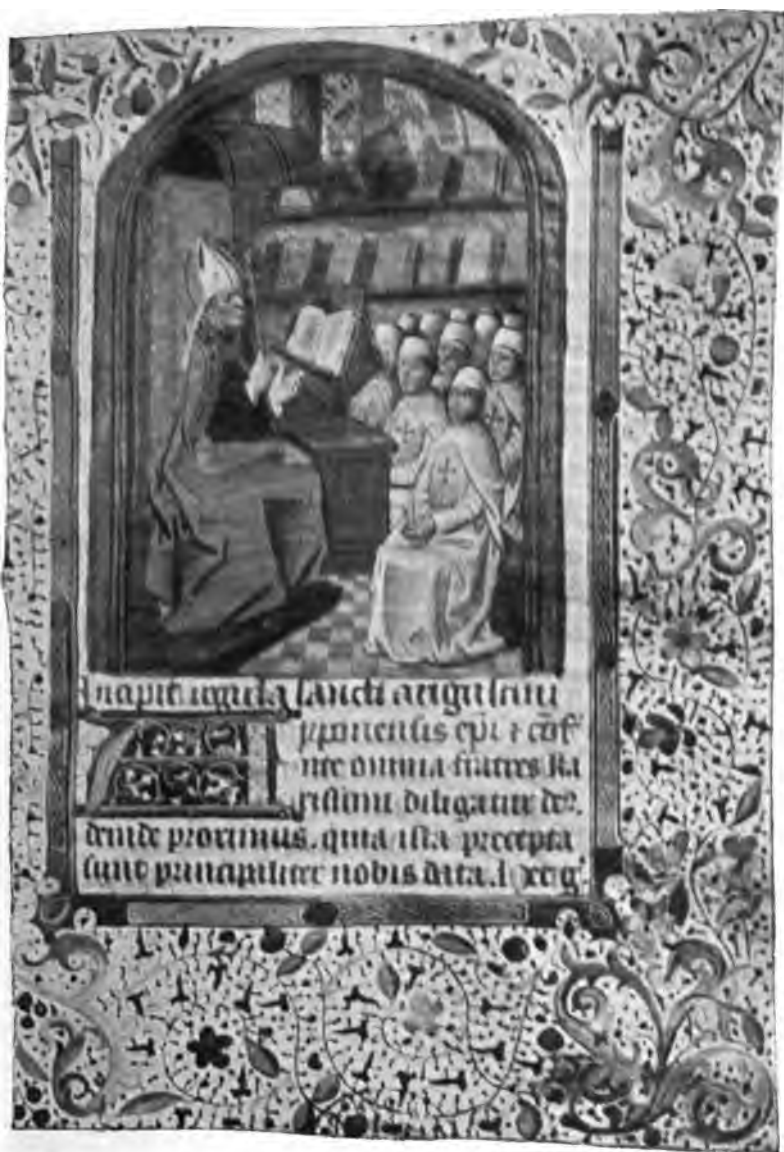 Incipit regula sancti augustini
yponensis epi ⁊ cōf
nte omnia fratres ka
rissimi diligatur de9.
deinde proximus. quia ista precepta
sunt principaliter nobis data. Hec g̾